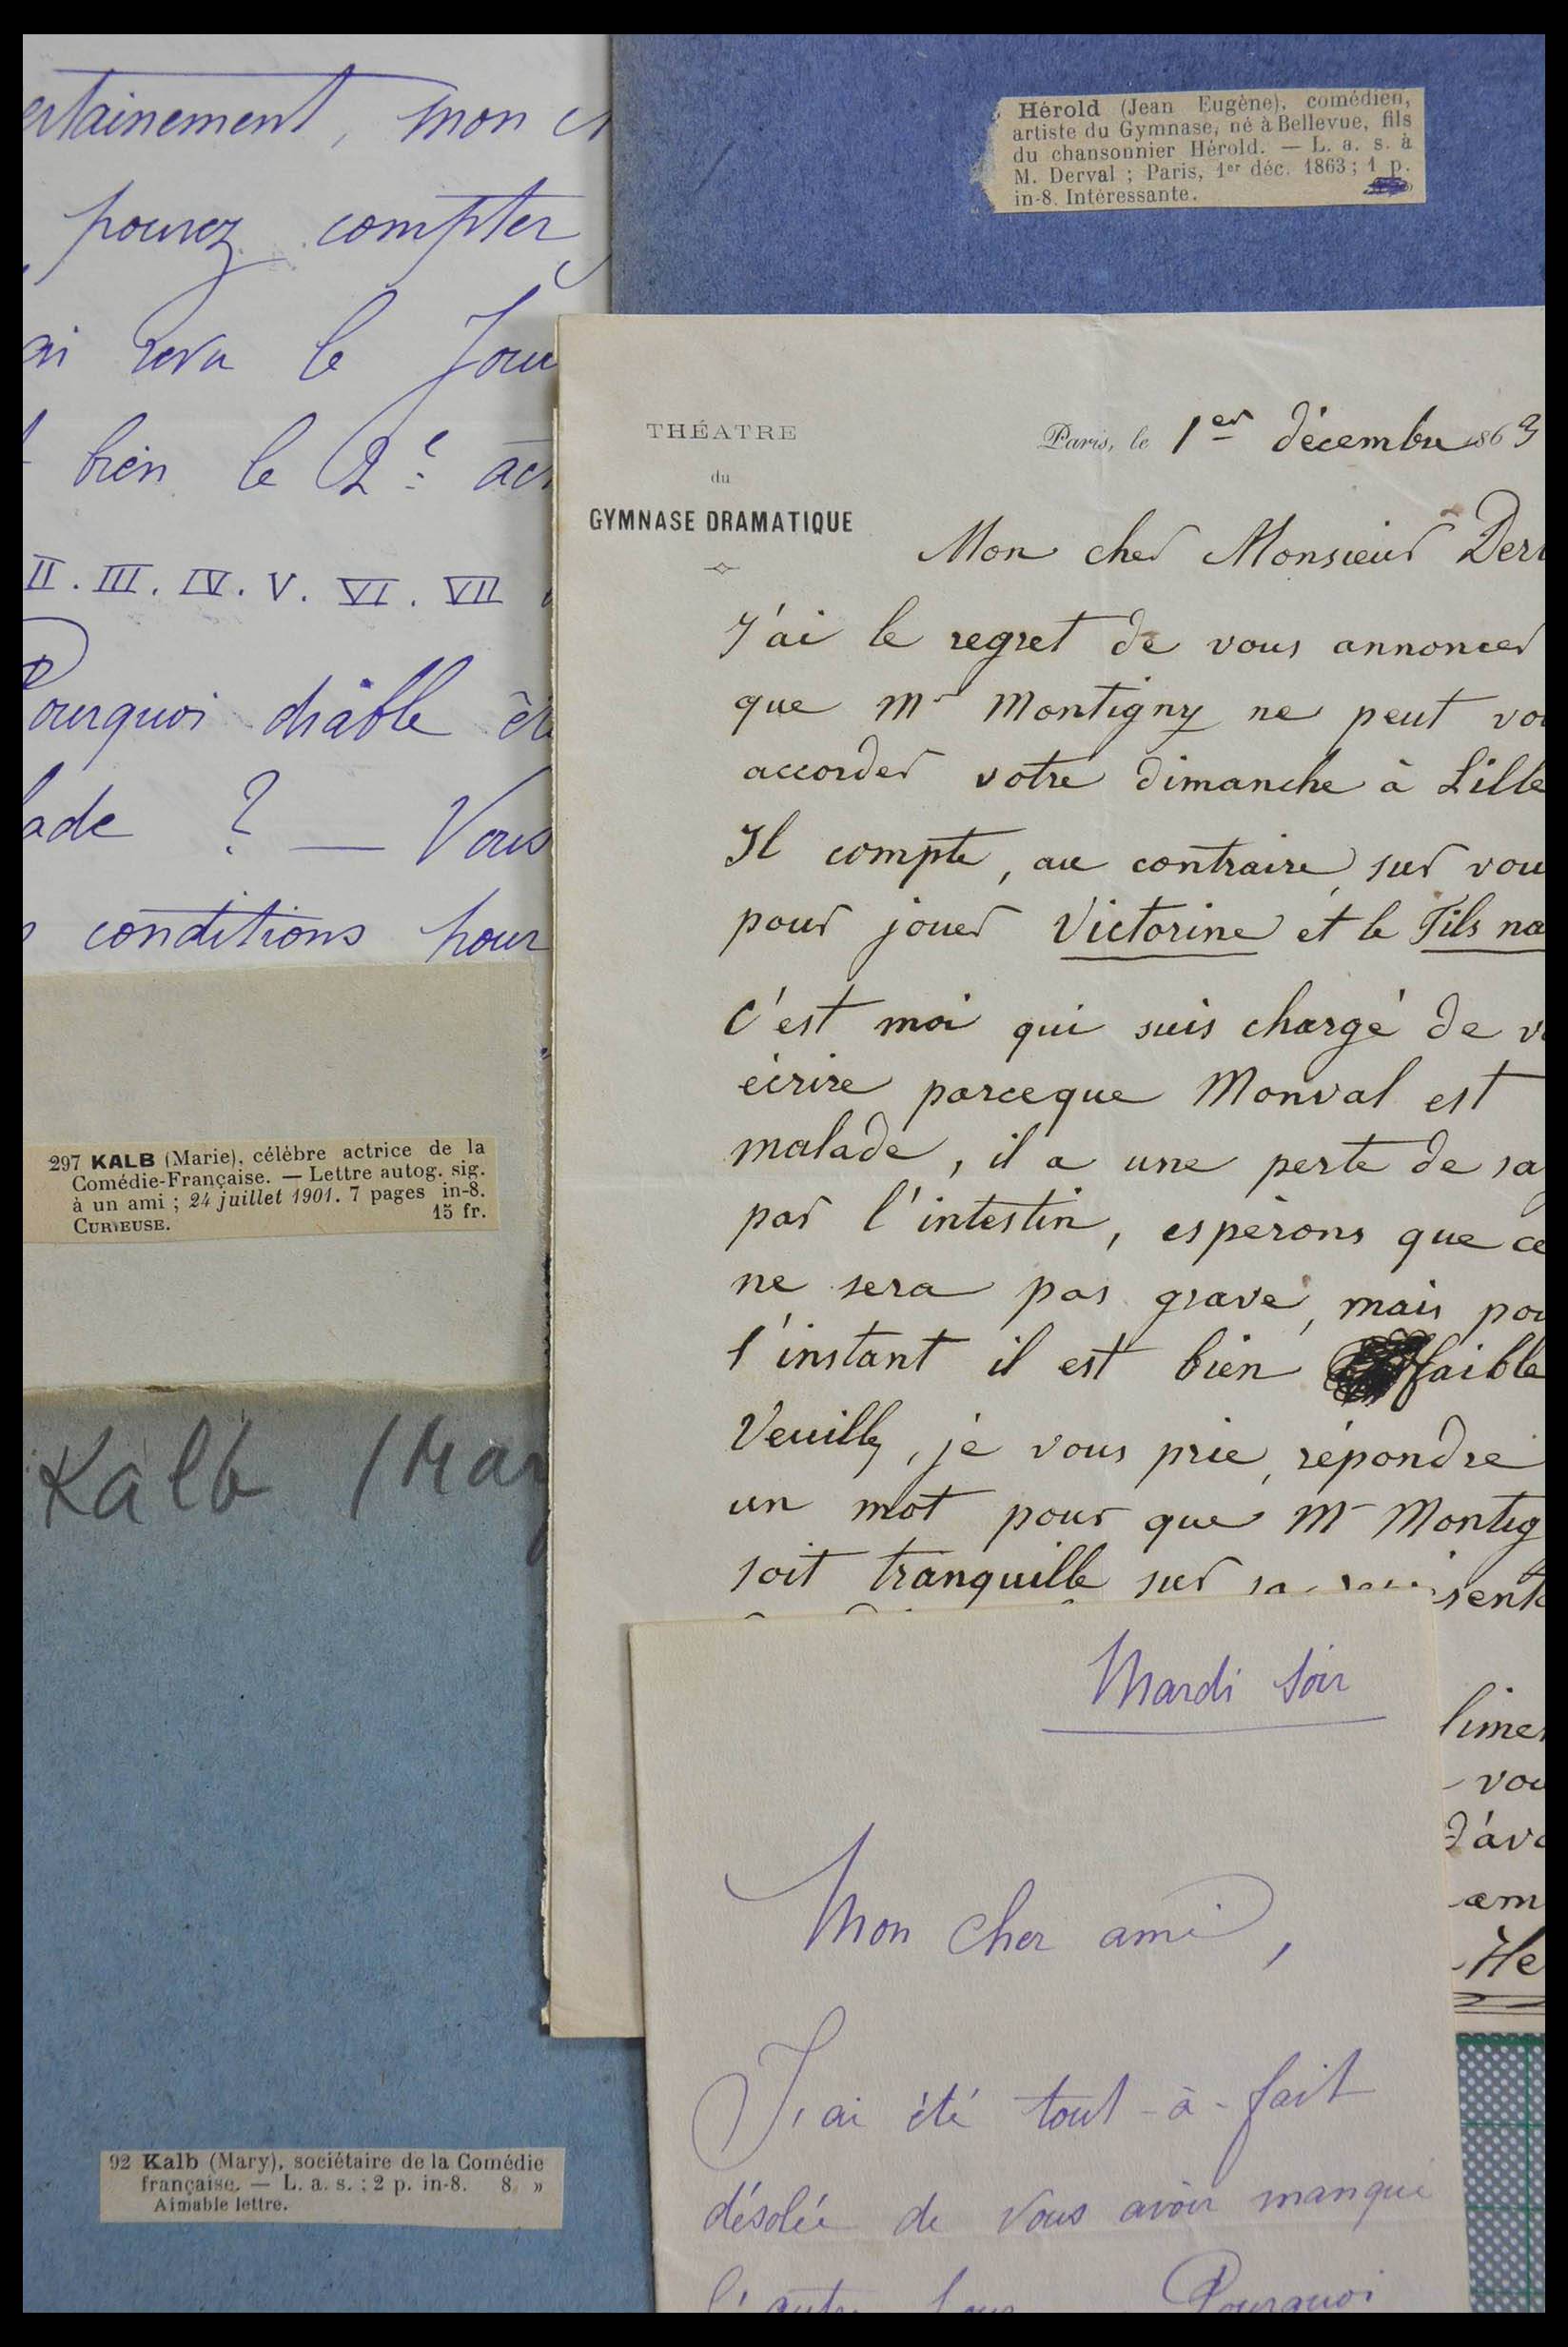 ertainement, mon
pouvez compter
le Jou
bien le 2e
II. III. IV. V. VI. VII
Pourquoi diable
lade ? — Vous
conditions pour
297 KALB (Marie), célèbre actrice de la
Comédie-Française. — Lettre autog. sig.
à un ami ; 24 juillet 1901. 7 pages in-8.
CURIEUSE. 15 fr.
Kalb (Mar
92 Kalb (Mary), sociétaire de la Comédie
française. — L. a. s. ; 2 p. in-8. 8 »
Aimable lettre.
Hérold (Jean Eugène), comédien,
artiste du Gymnase, né à Bellevue, fils
du chansonnier Hérold. — L. a. s. à
M. Derval ; Paris, 1er déc. 1863 ; 1 p.
in-8. Intéressante.
THÉATRE
du
GYMNASE DRAMATIQUE
Paris, le 1er décembre 1863
Mon cher Monsieur Der
J'ai le regret de vous annoncer
que Mr Montigny ne peut vo
accorder votre dimanche à Lille
Il compte, au contraire, sur vou
pour jouer Victorine et le Fils na
C'est moi qui suis chargé de v
écrire parceque Monval est
malade, il a une perte de sa
par l'intestin, espérons que ce
ne sera pas grave, mais pou
l'instant il est bien faible
Veuillez, je vous prie, répondre
un mot pour que Mr Montig
soit tranquille sur sa
lime
vou
d'avo
am
He
Mardi soir
Mon cher ami,
J'ai été tout-à-fait
désolée de vous avoir manqué
l'autre jour. Pourquoi